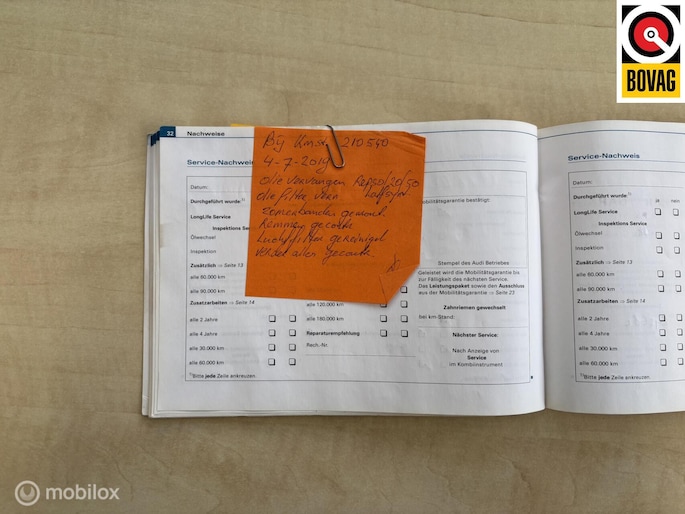 BOVAG
32 Nachweise
Service-Nachweis
Datum:
Durchgeführt wurde:¹⁾
LongLife Service
Inspektions Service
Ölwechsel
Inspektion
Zusätzlich ⇒ Seite 13
alle 60.000 km
alle 90.000 km
Zusatzarbeiten ⇒ Seite 14
alle 2 Jahre
alle 4 Jahre
alle 30.000 km
alle 60.000 km
¹⁾Bitte jede Zeile ankreuzen.
Bij Kmst 210540
4-7-2019
olie vervangen
olie filter verv
Remmen
Luchtfilter gereinigd
alles
alle 120.000 km
alle 180.000 km
Reparaturempfehlung
Rech.-Nr.
Mobilitätsgarantie bestätigt:
Stempel des Audi Betriebes
Geleistet wird die Mobilitätsgarantie bis
zur Fälligkeit des nächsten Service.
Das Leistungspaket sowie den Ausschluss
aus der Mobilitätsgarantie ⇒ Seite 23
Zahnriemen gewechselt
bei km-Stand:
Nächster Service:
Nach Anzeige von
Service
im Kombiinstrument
Service-Nachweis
Datum:
Durchgeführt wurde:¹⁾
ja nein
LongLife Service
Inspektions Service
Ölwechsel
Inspektion
Zusätzlich ⇒ Seite 13
alle 60.000 km
alle 90.000 km
Zusatzarbeiten ⇒ Seite 14
alle 2 Jahre
alle 4 Jahre
alle 30.000 km
alle 60.000 km
¹⁾Bitte jede Zeile ankreuzen.
mobilox